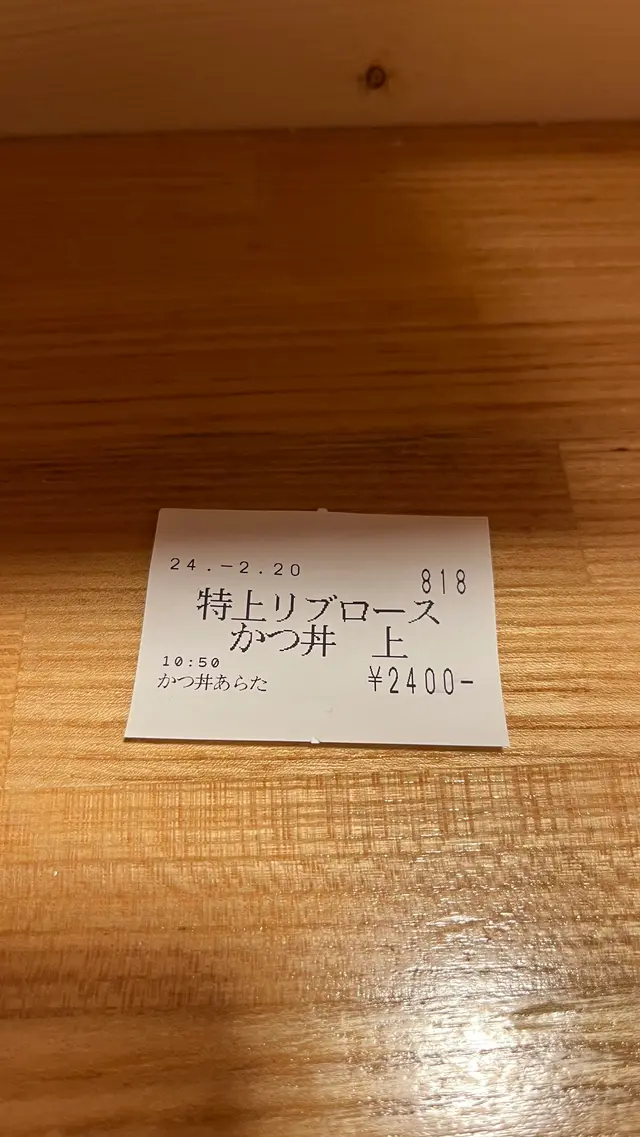 24.-2.20 818
特上リブロース
かつ丼 上
10:50
かつ丼あらた ¥2400-